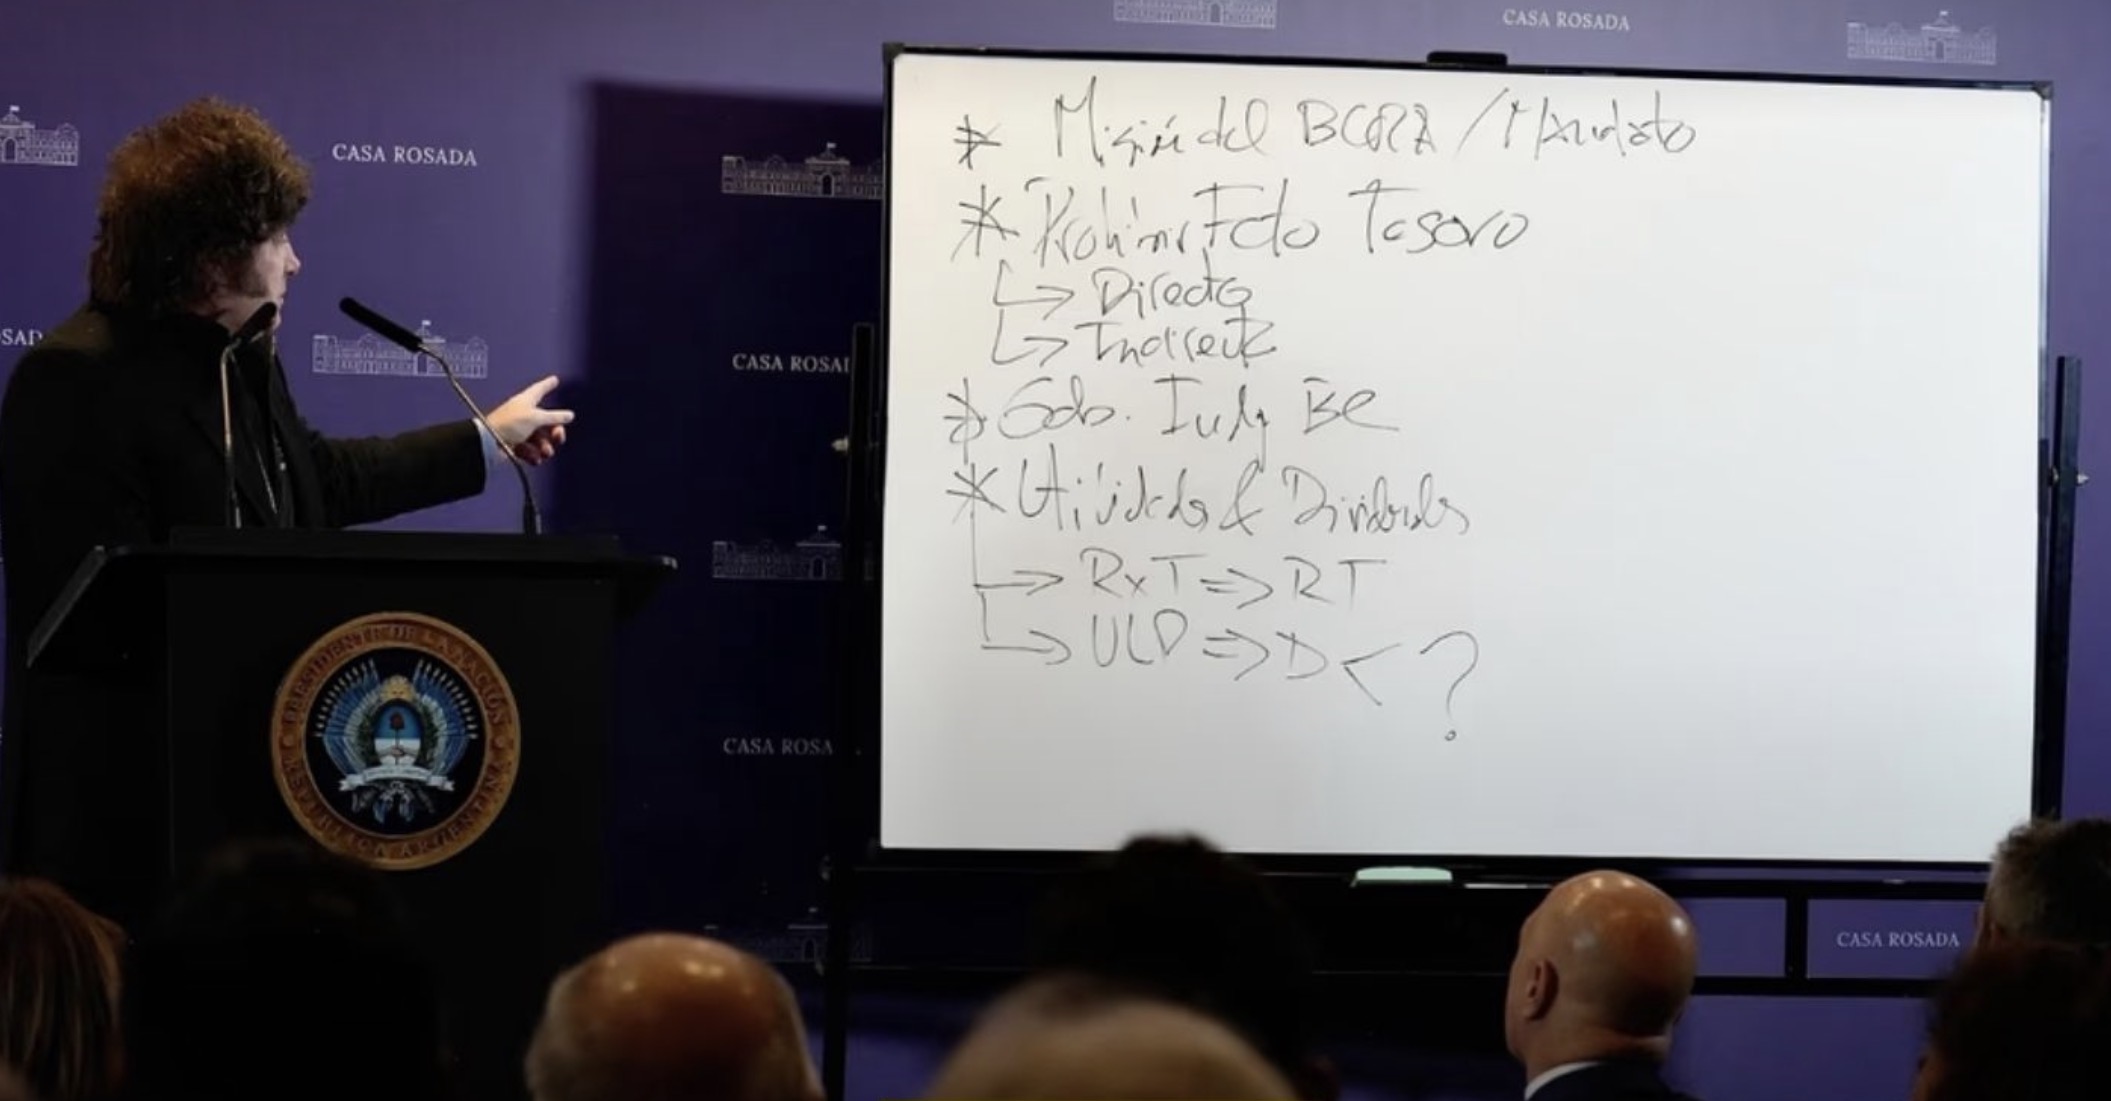 CASA ROSADA
CASA ROSADA
SAD
CASA ROSAD
CASA ROSA
CASA ROSADA
PRESIDENTE DE LA NACIÓN
REPÚBLICA ARGENTINA
* Misión del BCRA / Mandato
* Prohimir Fcto Tesoro
↳ Directo
↳ Indirecto
* Gob. BC
* Utilidades & Dividendos
→ RxT ⇒ RT
→ ULD ⇒ D < ?